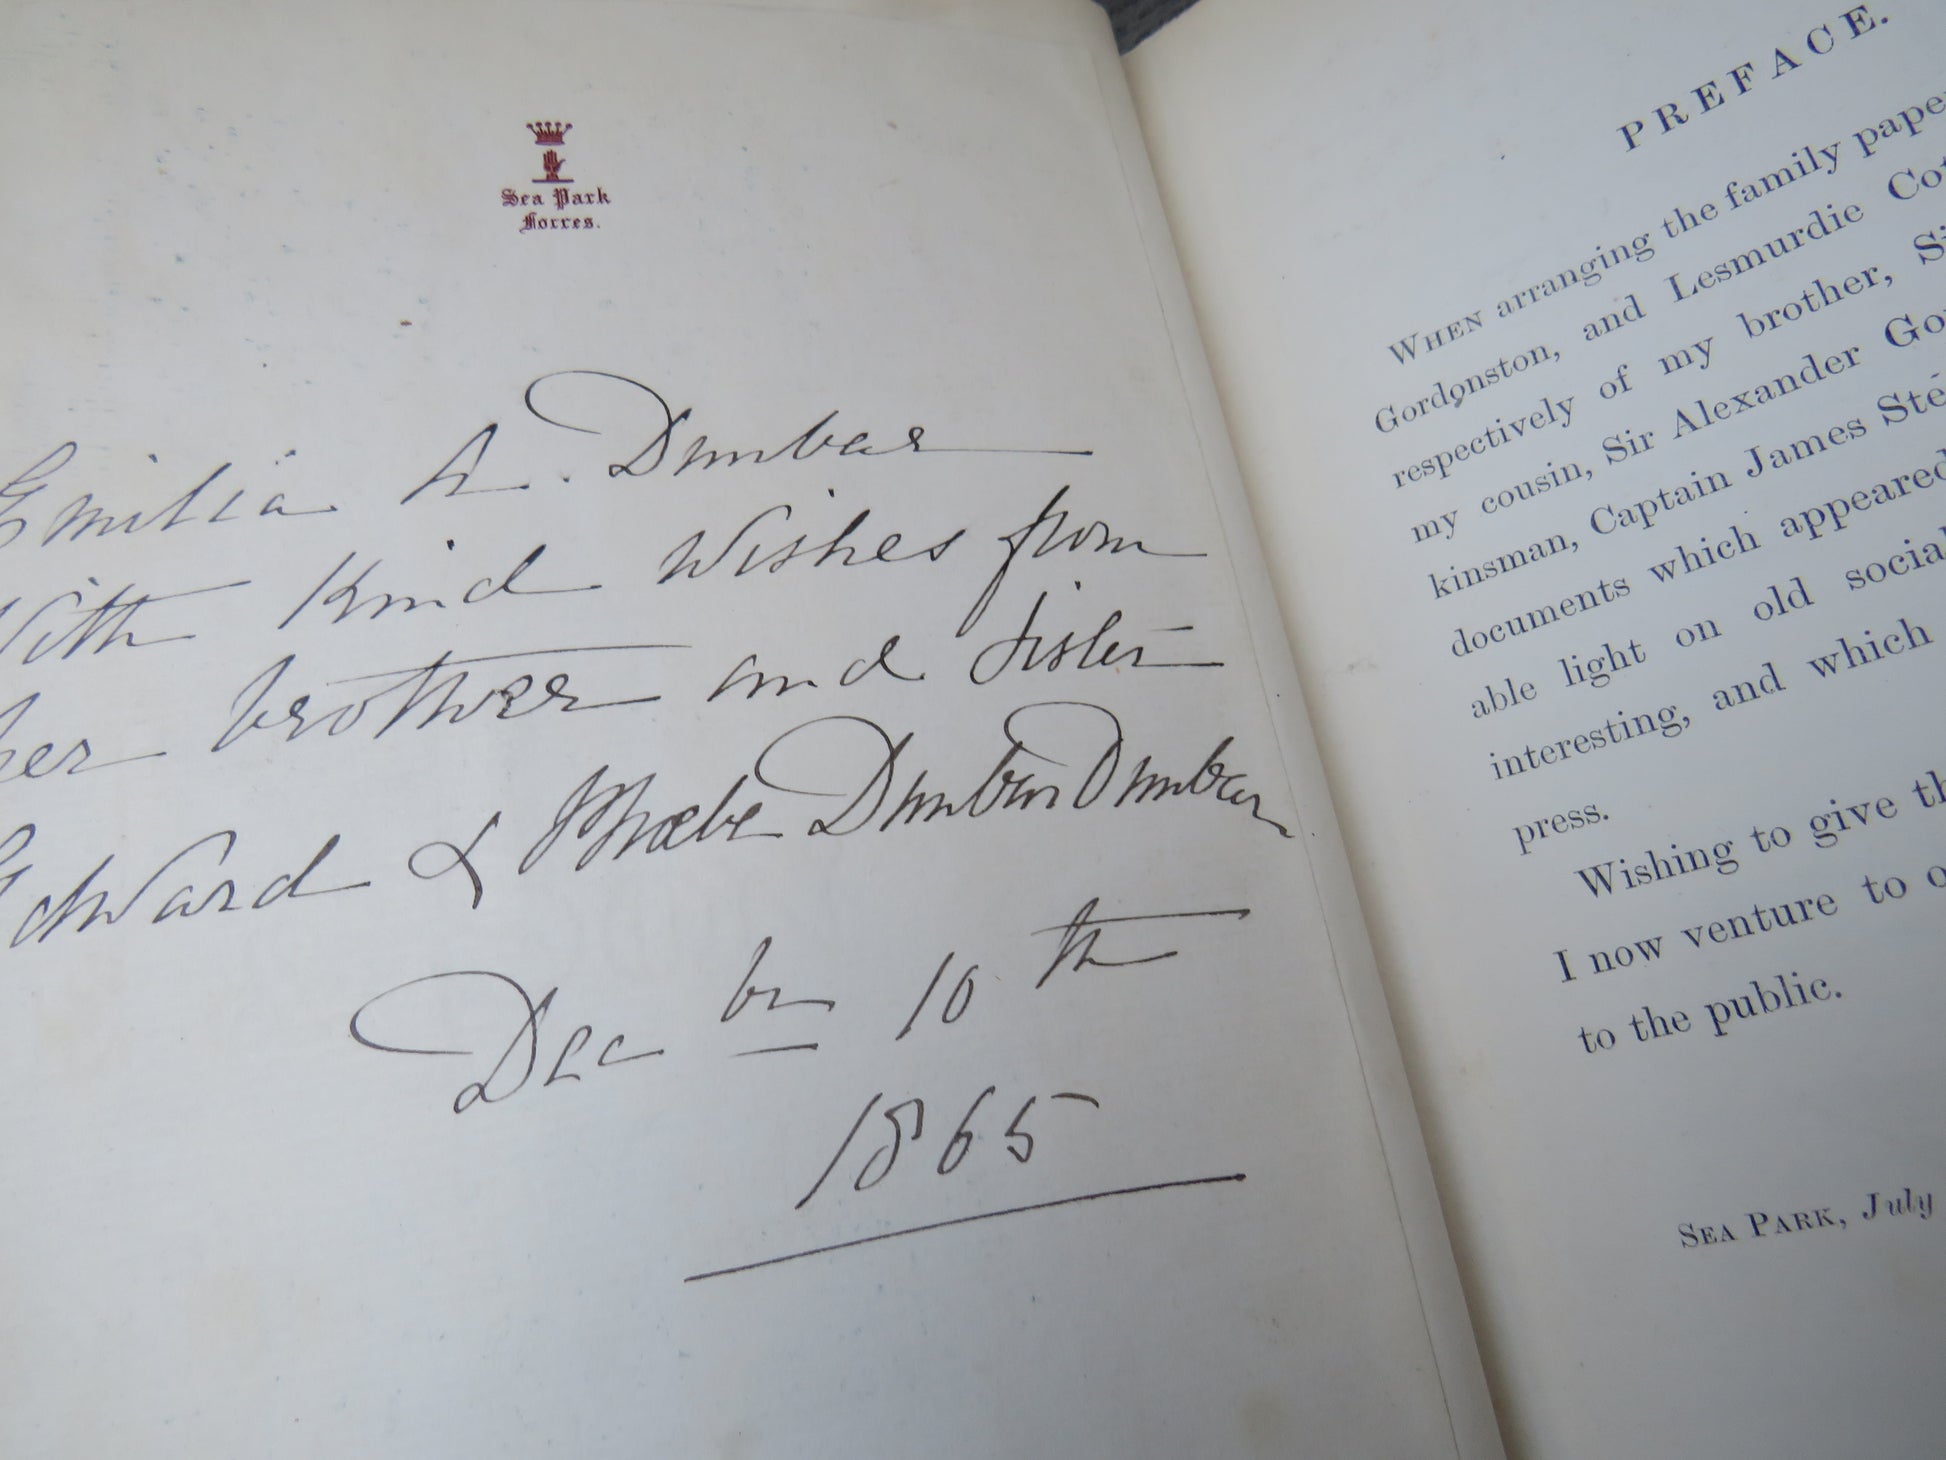 Sea Park
Forres.
Emilia A. Dunbar
With Kind Wishes from
her brother and Sister
Edward & Phœbe Dunbar Dunbar
Dec br 10 th
1865
PREFACE.
WHEN arranging the family
Gordonston, and Lesmurdie
respectively of my brother,
my cousin, Sir Alexander
kinsman, Captain James
documents which appeared
able light on old social
interesting, and which
press.
Wishing to give
I now venture to
to the public.
SEA PARK, July